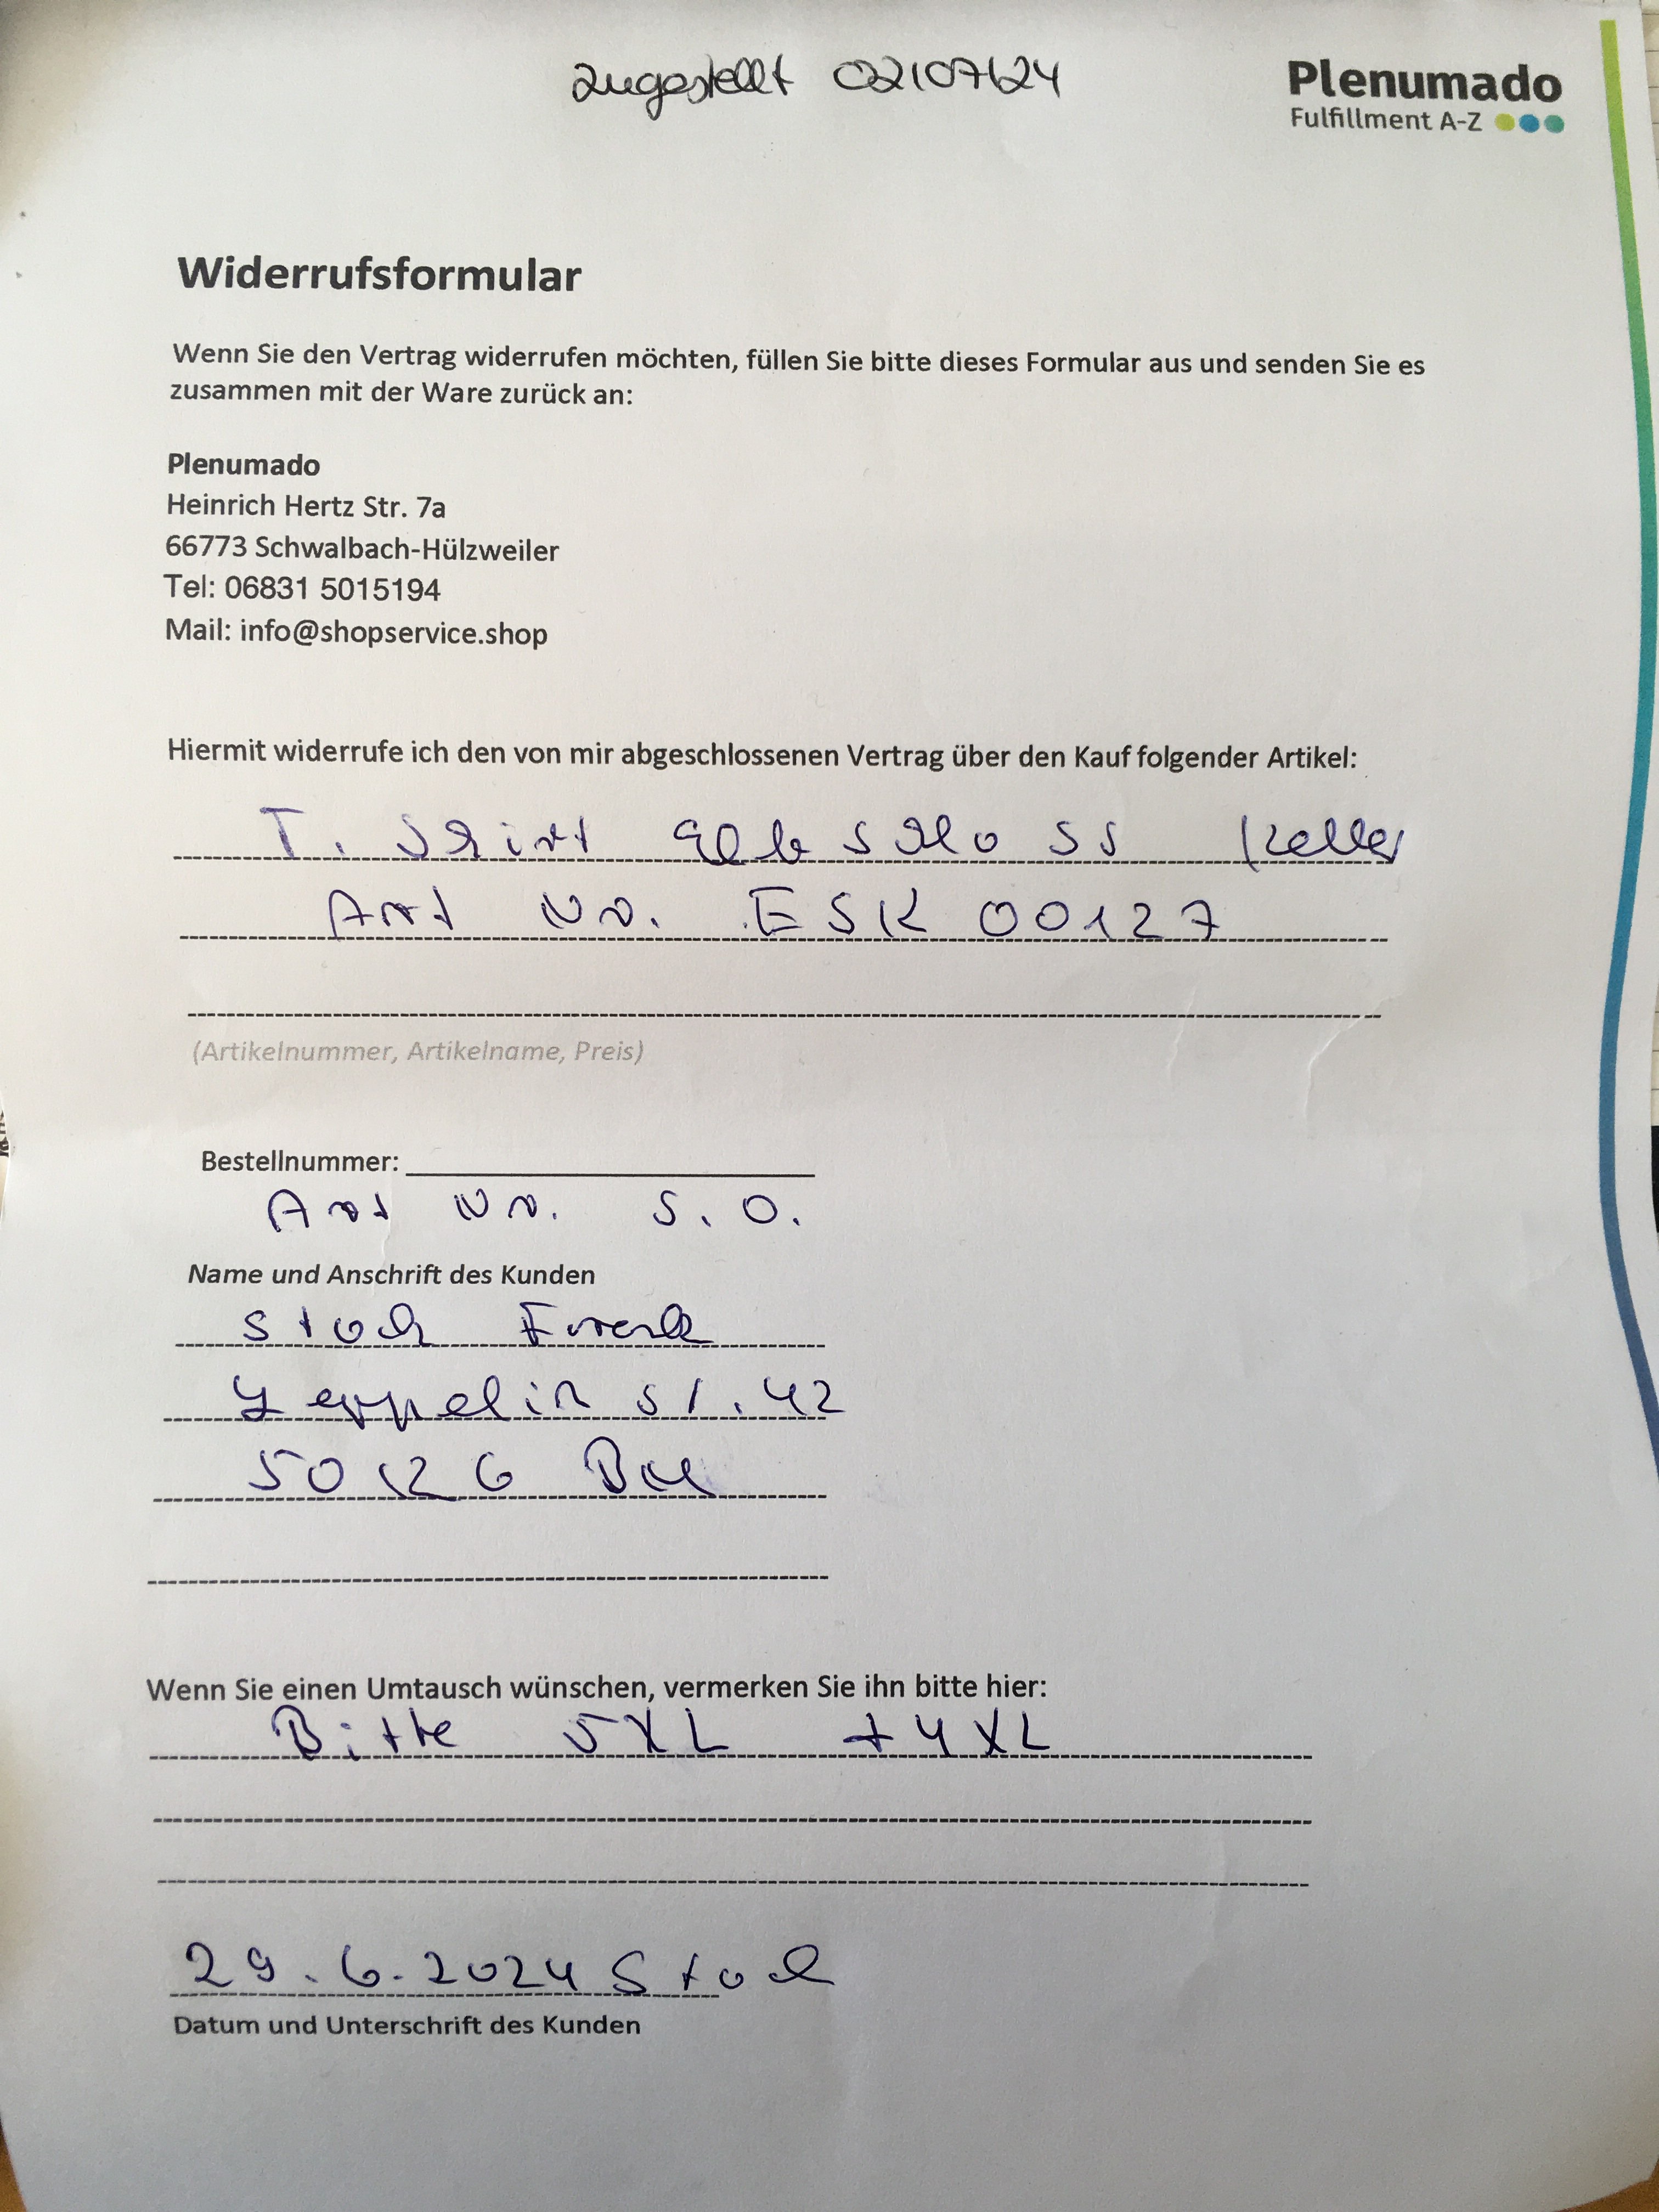 zugestellt 02107124
Plenumado
Fulfillment A-Z
Widerrufsformular
Wenn Sie den Vertrag widerrufen möchten, füllen Sie bitte dieses Formular aus und senden Sie es
zusammen mit der Ware zurück an:
Plenumado
Heinrich Hertz Str. 7a
66773 Schwalbach-Hülzweiler
Tel: 06831 5015194
Mail: info@shopservice.shop
Hiermit widerrufe ich den von mir abgeschlossenen Vertrag über den Kauf folgender Artikel:
T. Shirt Elbschloss Keller
Art Nr. ESK 00127
(Artikelnummer, Artikelname, Preis)
Bestellnummer:
Art Nr. s.o.
Name und Anschrift des Kunden
Stoch Frank
Zeppelin st. 42
50126 BM
Wenn Sie einen Umtausch wünschen, vermerken Sie ihn bitte hier:
Bitte 5XL + 4XL
29.6.2024 Stoch
Datum und Unterschrift des Kunden